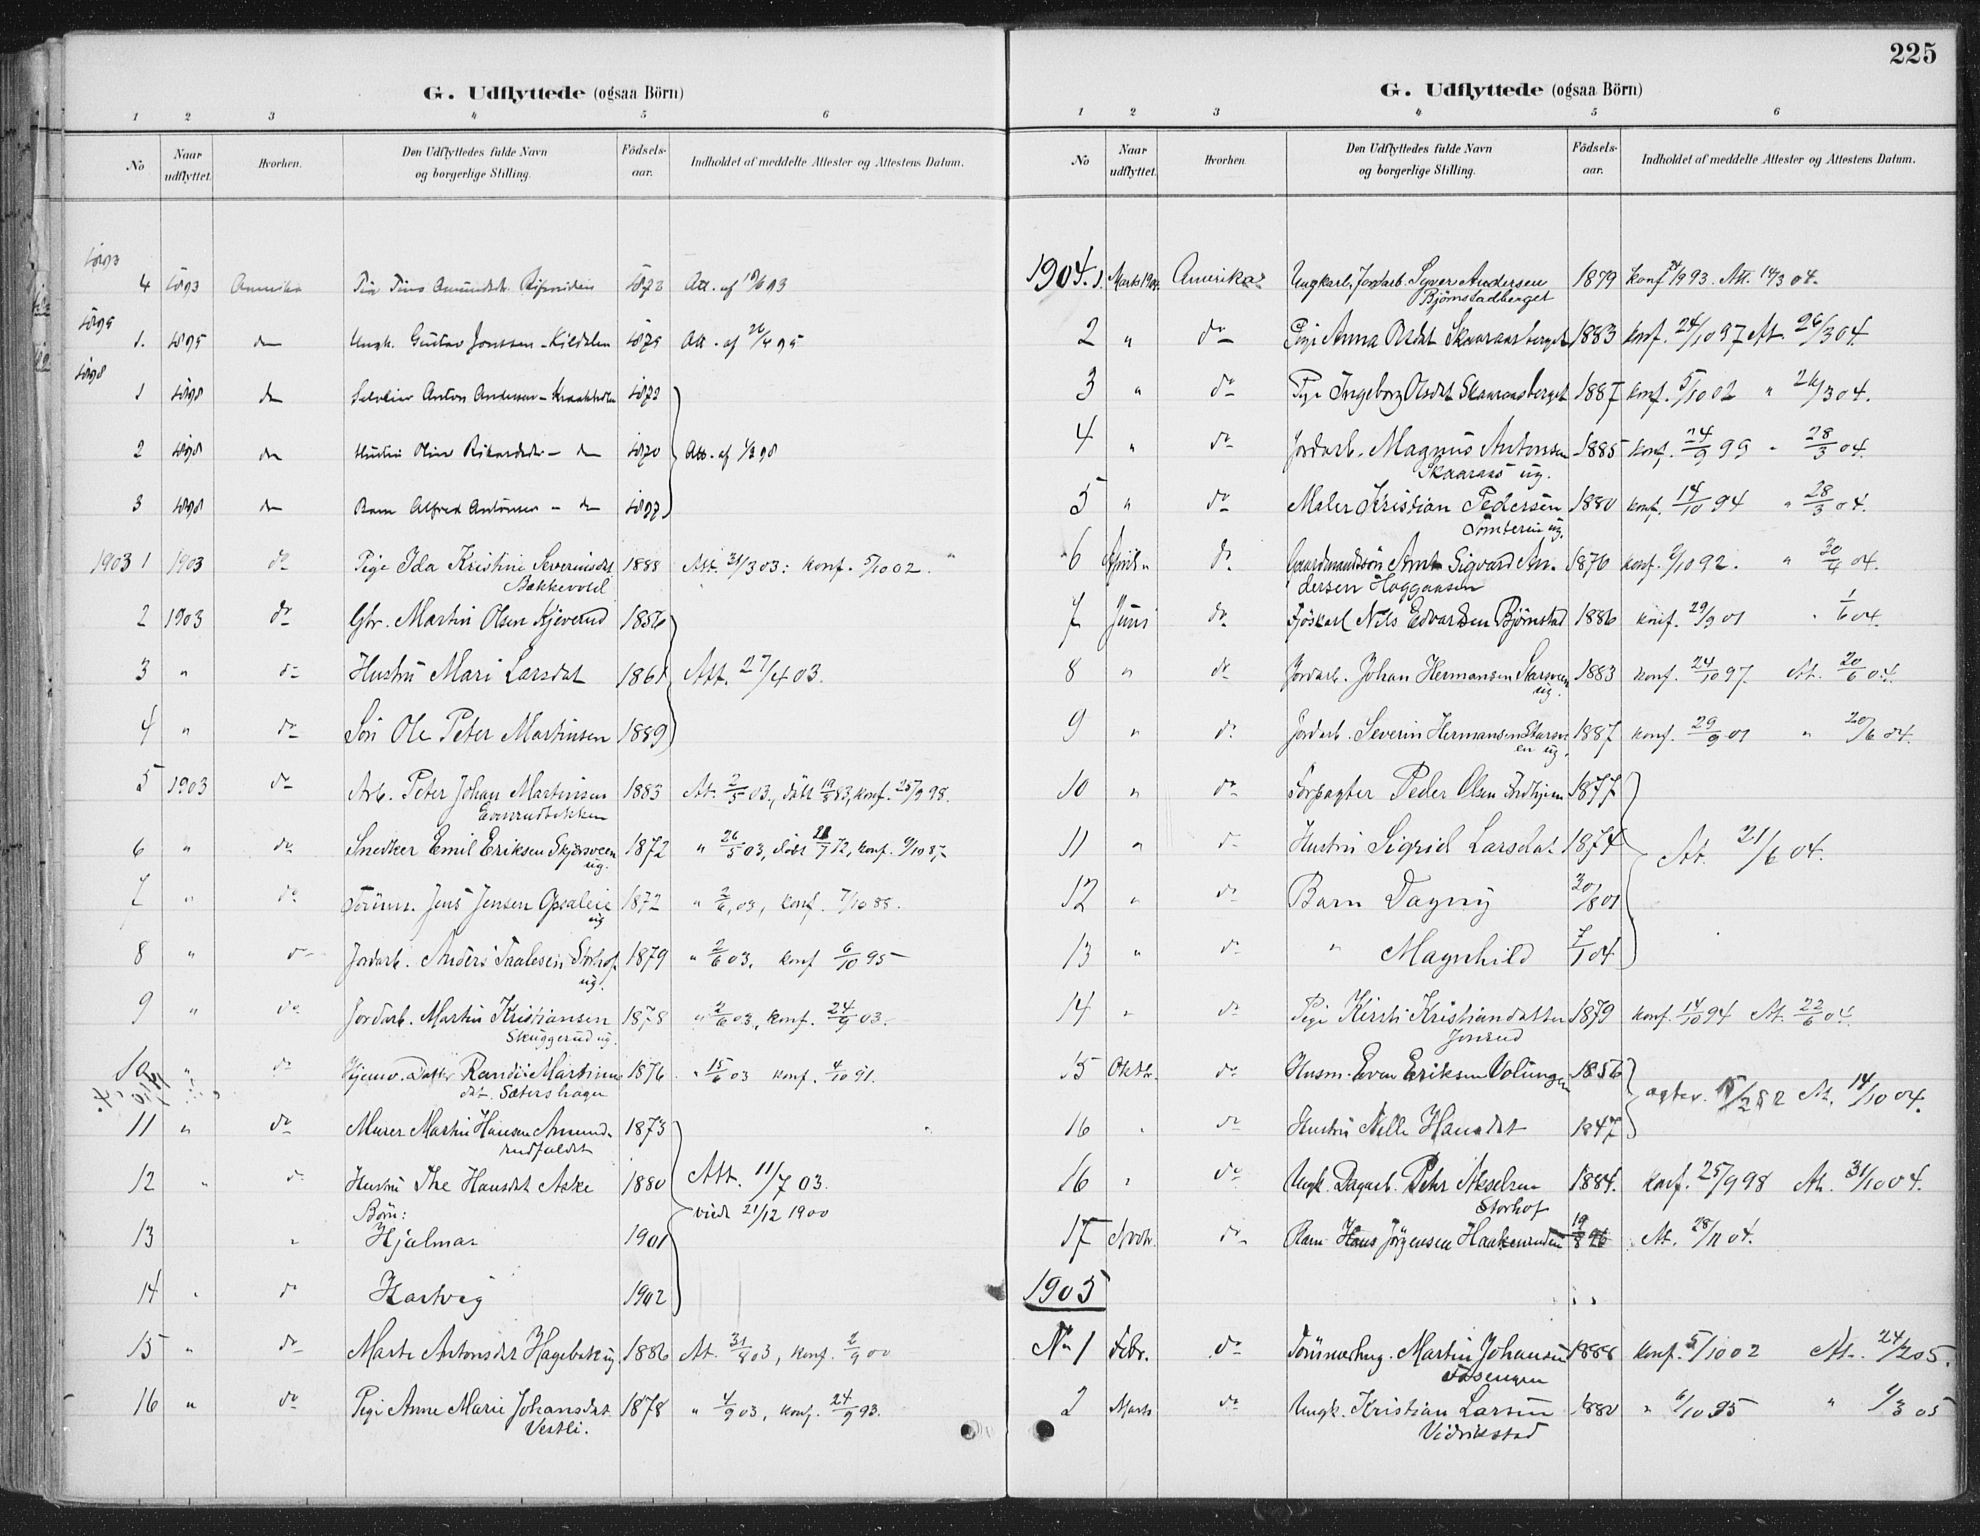 225
G. Udflyttede (ogsaa Börn)
1 2 3 4 5 6
No Naar udflyttet. Hvorhen. Den Udflyttedes fulde Navn og borgerlige Stilling. Födsels-aar. Indholdet af meddelte Attester og Attestens Datum.
1893
4 1893 Amerika 1873 Att. af
1895
1. 1895 do Ungk. Gustav Jonssen Kildalen 1875 Att. af
1898
1 1898 do Anton Andersen 1872
2 1898 do Hustru Oline do 1870 Att. af
3 1898 do Barn Alfred Antonsen - do 1897
1903 1 1903 do Pige Ida Kristine Severinsdat 1888 Att. 31/3 03: konf. 5/10 02.
Bakkevold
2 1903 do Gbr. Martin Olsen Kjeverud 1856
3 " do Hustru Mari Larsdat 1861 Att. 27/4 03.
4 " do Sön Ole Peter Martinsen 1889
5 1903 do Arb. Peter Johan Martinsen 1883 At. 2/5 03, döbt 19/8 83, konf. 25/9 98.
6 " do Snedker Emil Eriksen Skjærsveen 1872 " 26/5 03, döbt 21/7 72, konf.
ug.
7 " do Tömm. Jens Jensen Opsaleie 1872 " 2/6 03, konf. 7/10 88.
ug
8 " do Jordarb. Anders Paalesen Storhof 1879 " 2/6 03, konf 6/10 95
ug.
9 " do Jordarb. Martin Kristiansen 1878 " 2/6 03, konf. 24/9 03.
Skuggerud ug.
10 " do Hjemv. Datter Randi Martins 1876 " 15/6 03 konf. 4/10 91.
dat. Sætershagen
11 " do Murer Martin Hansen Amund- 1873
rudfaldet
12 " do Hustru The Hansdat Aske 1880 Att. 11/7 03.
Börn: viede 21/12 1900
13 " Hjalmar 1901
14 " do Hartvig 1902
15 " do Marte Antonsdat Hagebakug 1886 At. 31/8 03, konf. 2/9 00
16 " do Pige Anne Marie Johansdat 1878 " 4/9 03, konf. 24/9 93.
Vestli.
G. Udflyttede (ogsaa Börn)
1 2 3 4 5 6
No Naar udflyttet. Hvorhen Den Udflyttedes fulde Navn og borgerlige Stilling. Födsels-aar. Indholdet af meddelte Attester og Attestens Datum.
1904. 1. Marts 1904 Amerika Ungkarl, Jordarb. Syver Andersen 1879 konf 93. Att. 14/3 04.
Bjørnstadberget
2 " do Pige Anna Olsdat Skaaraasberget 1883 konf. 24/10 97 At. 26/3 04.
3 " do Pige Ingeborg Olsdat Skaaraasberget 1887 konf. 5/10 02 " 26/3 04.
4 " do Jordarb. Magnus Antonsen 1885 konf. 24/9 99 " 28/3 04.
Skaaraas ug.
5 " do Maler Kristian Pedersen 1880 konf. 14/10 94 " 28/3 04.
Tomterun ug.
6 April " do Gaardmandssön Arnt Sigvard An- 1876 konf. 9/10 92. " 30/4 04.
dersen Haggaasen
7 Juni do Sjöskarl Nils Edvardsen Bjørnstad 1886 konf. 29/9 01 " 1/6 04.
8 " do Jordarb. Johan Hermansen Starsveen 1883 konf. 24/10 97. At. 20/6 04.
ug.
9 " do Jordarb. Severin Hermansen Starsve 1887 konf. 29/9 01 " 20/6 04.
en ug.
10 " do Forpagter Peder Olsen 1877
11 " do Hustru Sigrid Larsdat 1874 At. 21/6 04.
12 " do Barn Dagny 30/8 01
13 " do " Magnhild 7/1 04
14 " do Pige Kirsti Kristiandatter 1879 konf. 14/10 94 At. 22/6 04.
Jonrud
15 Oktbr. do Husm. Even Eriksen Volungen 1856 At. 14/10 04.
16 " do Hustru Nille Hansdat 1847
16 " do Ungk. Dagarb. Peter Akselsen 1884. konf. 25/9 98 At. 31/10 04.
Storhof
17 Novbr. do Barn Hans Jörgensen Haakenruden 19/8 96 At. 28/11 04.
1905
No 1 Febr. do Martin Johansen 1888 konf. 5/10 02 At. 24/2 05.
Aasengen
2 Marts do Ungk. Kristian Larsen 1880 " 6/10 95 " 1/3 05
Vidrikstad